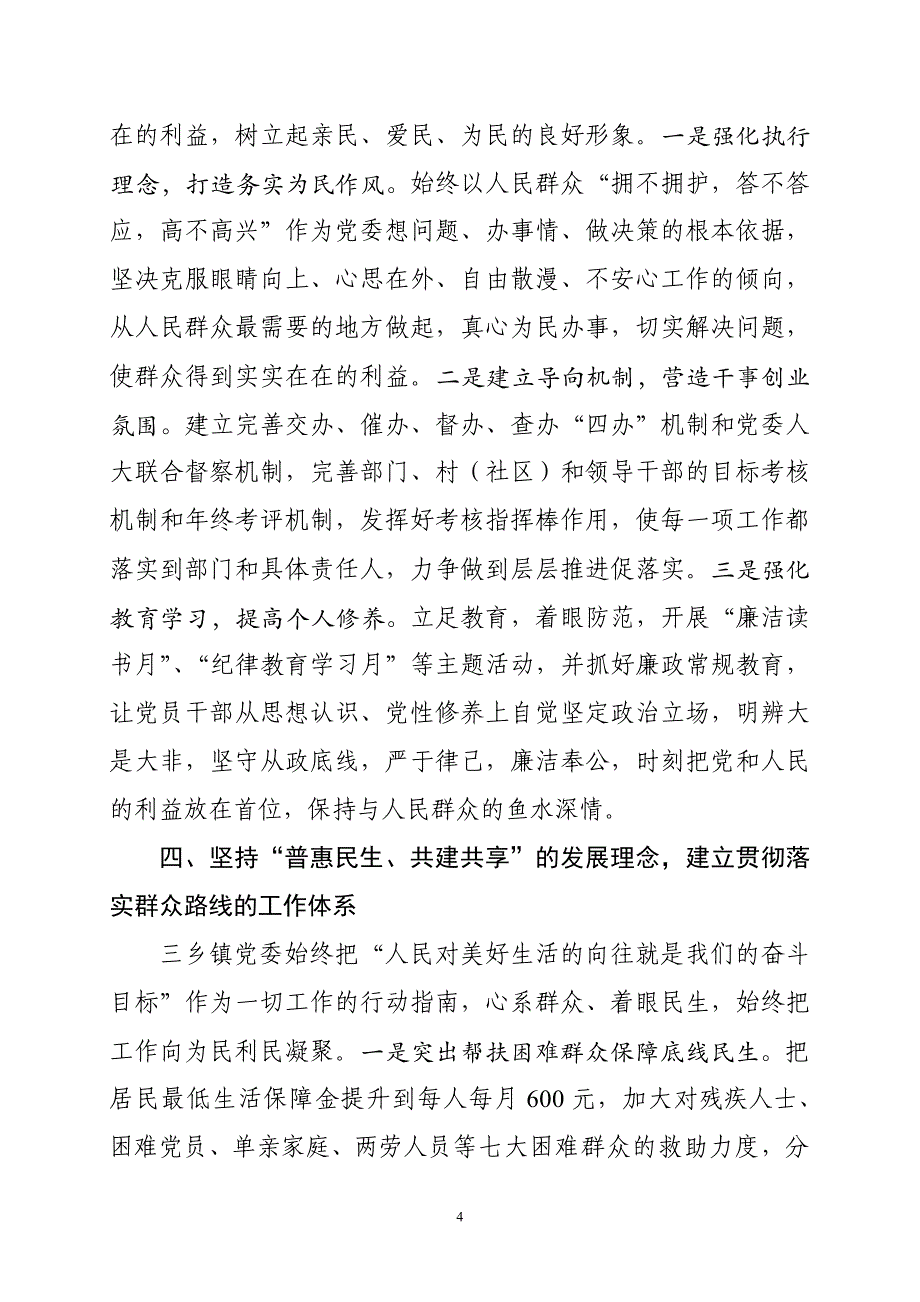 在的利益，树立起亲民、爱民、为民的良好形象。一是强化执行
理念，打造务实为民作风。始终以人民群众“拥不拥护，答不答
应，高不高兴”作为党委想问题、办事情、做决策的根本依据，
坚决克服眼睛向上、心思在外、自由散漫、不安心工作的倾向，
从人民群众最需要的地方做起，真心为民办事，切实解决问题，
使群众得到实实在在的利益。二是建立导向机制，营造干事创业
氛围。建立完善交办、催办、督办、查办“四办”机制和党委人
大联合督察机制，完善部门、村（社区）和领导干部的目标考核
机制和年终考评机制，发挥好考核指挥棒作用，使每一项工作都
落实到部门和具体责任人，力争做到层层推进促落实。三是强化
教育学习，提高个人修养。立足教育，着眼防范，开展“廉洁读
书月”、“纪律教育学习月”等主题活动，并抓好廉政常规教育，
让党员干部从思想认识、党性修养上自觉坚定政治立场，明辨大
是大非，坚守从政底线，严于律己，廉洁奉公，时刻把党和人民
的利益放在首位，保持与人民群众的鱼水深情。
四、坚持“普惠民生、共建共享”的发展理念，建立贯彻落
实群众路线的工作体系
三乡镇党委始终把“人民对美好生活的向往就是我们的奋斗
目标”作为一切工作的行动指南，心系群众、着眼民生，始终把
工作向为民利民凝聚。一是突出帮扶困难群众保障底线民生。把
居民最低生活保障金提升到每人每月 600 元，加大对残疾人士、
困难党员、单亲家庭、两劳人员等七大困难群众的救助力度，分
4